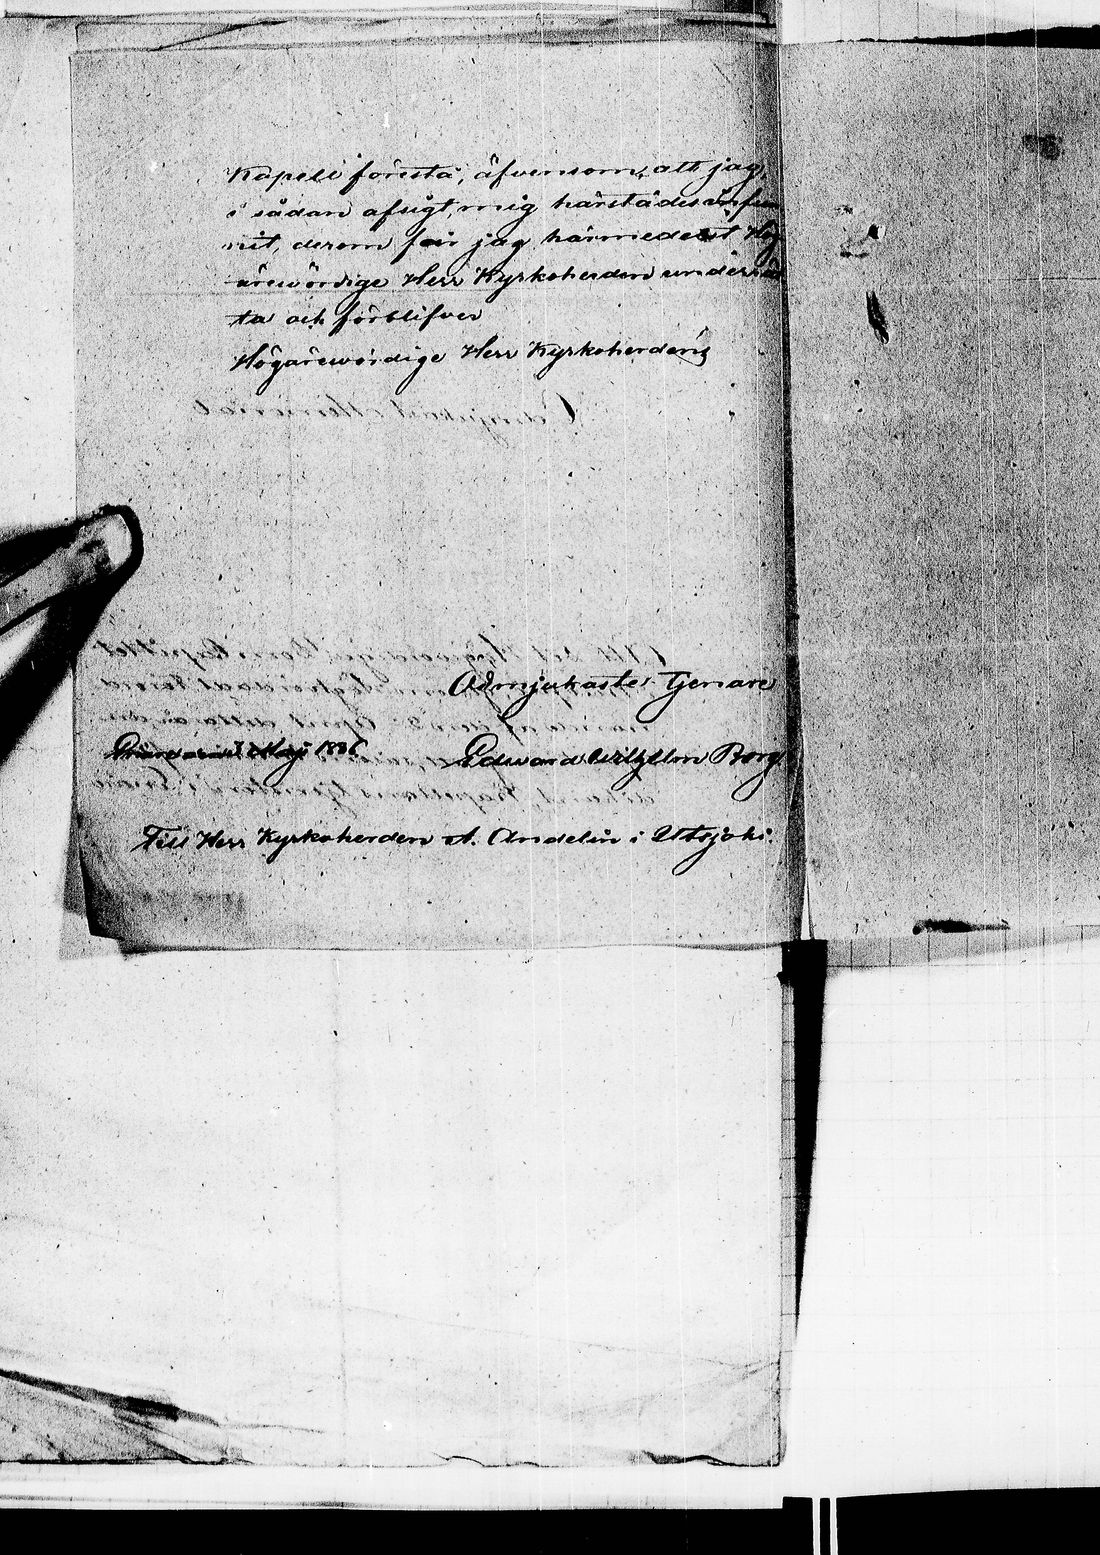 Kapell förestå, äfvensom, att jag,
i sådan afsigt, mig härstädes infun
nit, derom får jag härmedelst Hög
ärewördige Herr Kyrkoherden underrät
ta och förblifver
Högärewördige Herr Kyrkoherdens
Ödmjukaste Tjenare
Maji 1836 Edward Wilhelm Borg
Till Herr Kyrkoherden A. Andelin i Utsjoki.